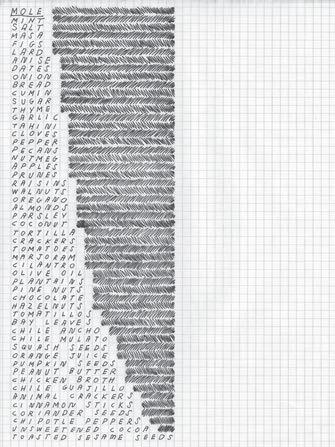 MOLE
MINT
SALT
MASA
FIGS
LARD
ANISE
DATES
ONION
BREAD
CUMIN
SUGAR
THYME
GARLIC
TAHINI
CLOVES
PEPPER
PECANS
NUTMEG
APPLES
PRUNES
RAISINS
WALNUTS
OREGANO
ALMONDS
PARSLEY
COCONUT
TORTILLA
CRACKERS
TOMATOES
MARJORAM
CILANTRO
OLIVE OIL
PLANTAINS
PINE NUTS
CHOCOLATE
HAZELNUTS
TOMATILLOS
BAY LEAVES
CHILE ANCHO
CHILE MULATO
SQUASH SEEDS
ORANGE JUICE
PUMPKIN SEEDS
PEANUT BUTTER
CHICKEN BROTH
CHILE GUAJILLO
ANIMAL CRACKERS
CINNAMON STICKS
CORIANDER SEEDS
CHIPOTLE PEPPERS
UNSWEETENED COCOA
TOASTED SESAME SEEDS